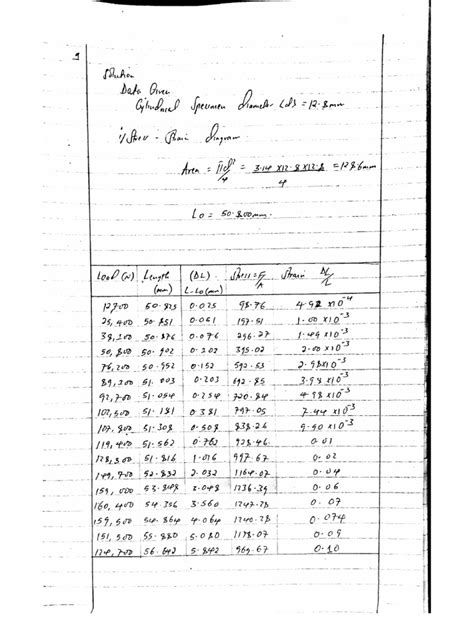 9
Solution
Data Given
Cylindrical Specimen diameter (d) = 12.8mm
i/ Stress - Strain diagram
Area = πd²/4 = 3.14 x 12.8 x 12.8 / 4 = 128.6mm
Lo = 50.800mm.
Load (N) Length (mm) (DL) L-Lo(mm) Stress = F/A Strain DL/L
12700 50.825 0.025 98.76 4.92 x10⁻⁴
25,400 50.851 0.051 197.51 1.00 x10⁻³
38,100 50.876 0.076 296.27 1.49 x10⁻³
50,800 50.902 0.102 395.02 2.00 x10⁻³
76,200 50.952 0.152 592.53 2.98x10⁻³
89,100 51.003 0.203 692.85 3.98 x10⁻³
92,700 51.054 0.254 720.84 4.98 x10⁻³
102,500 51.181 0.381 797.05 7.44 x10⁻³
107,800 51.308 0.508 838.26 9.90 x10⁻³
119,400 51.562 0.762 928.46 0.01
128,300 51.816 1.016 997.67 0.02
149,700 52.832 2.032 1164.07 0.04
159,000 53.848 3.048 1236.39 0.06
160,400 54.356 3.560 1247.28 0.07
159,500 54.864 4.064 1240.28 0.074
151,500 55.880 5.080 1178.07 0.09
124,700 56.642 5.842 969.67 0.10